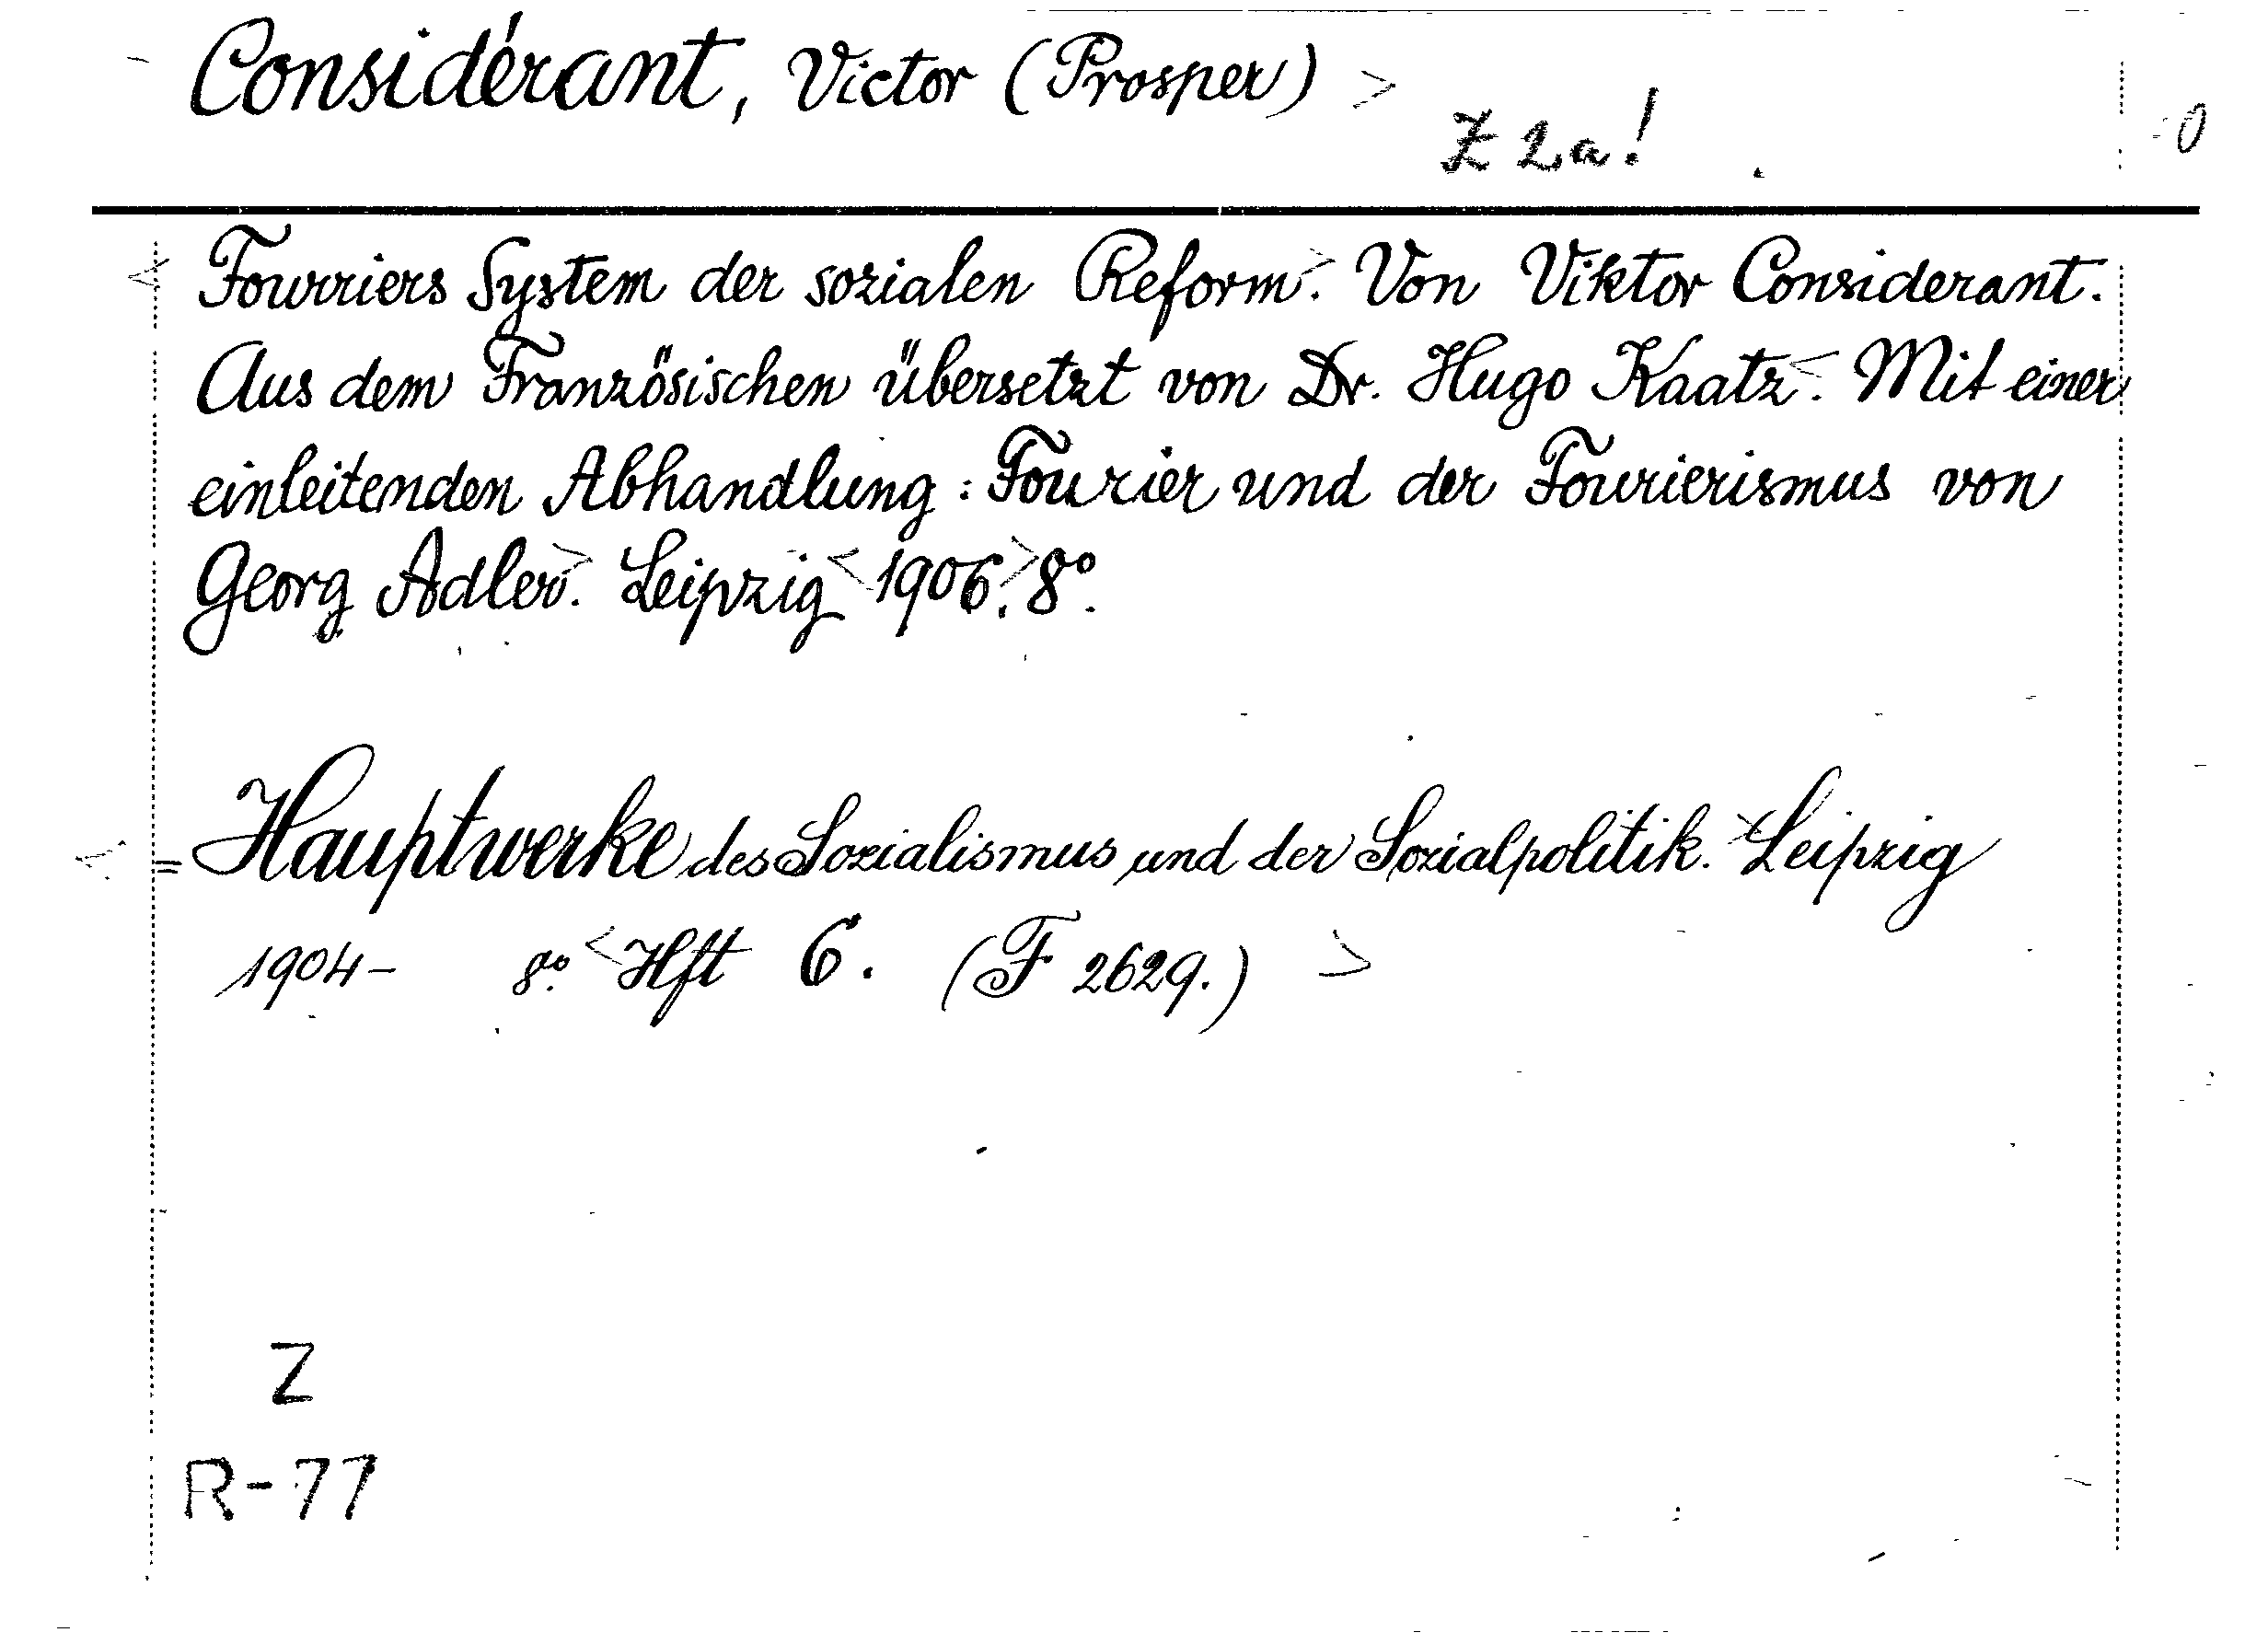 Considérant, Victor (Prosper) >
Z 2a!
0
< Fourriers System der sozialen Reform >. Von Viktor Considerant.
Aus dem Französischen übersetzt von Dr. Hugo Kaatz <. Mit einer
einleitenden Abhandlung: Fourier und der Fourierismus von
Georg Adler >. Leipzig < 1906. > 8º.
< = Hauptwerke des Sozialismus und der Sozialpolitik. Leipzig
1904- 8º. < Hft 6. (F 2629.) >
Z
R-77